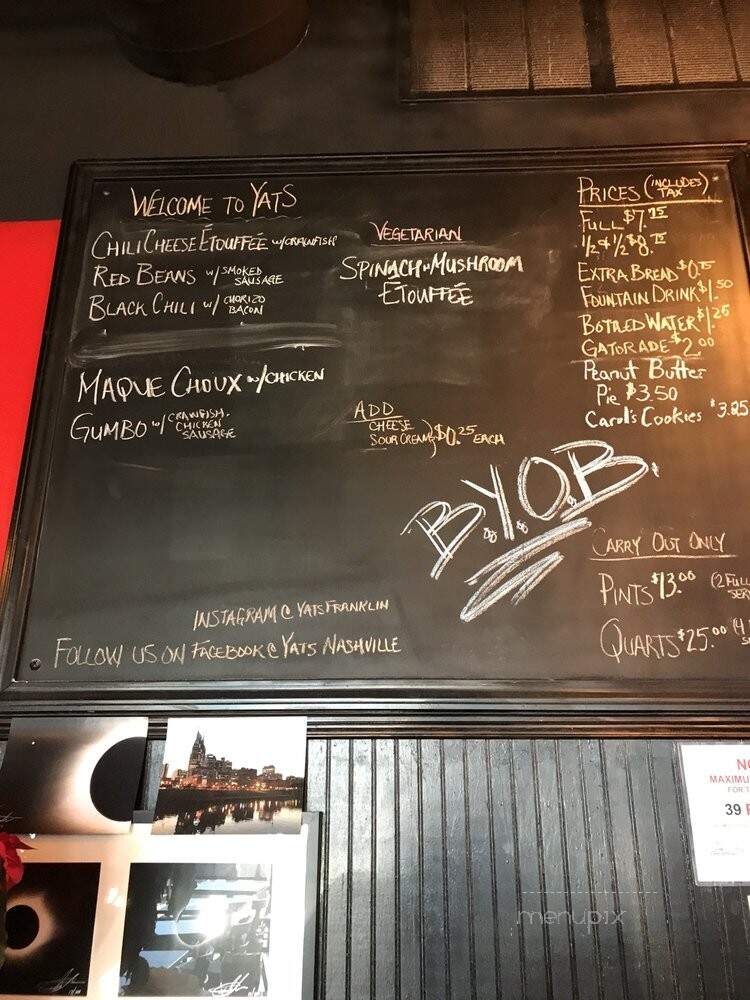 WELCOME TO YATS
CHILI CHEESE ÉTOUFFÉE w/ CRAWFISH
RED BEANS w/ SMOKED SAUSAGE
BLACK CHILI w/ CHORIZO BACON
MAQUE CHOUX w/ CHICKEN
GUMBO w/ CRAWFISH, CHICKEN SAUSAGE
VEGETARIAN
SPINACH-MUSHROOM
ÉTOUFFÉE
ADD
CHEESE
SOUR CREAM } $0.25 EACH
PRICES (INCLUDES TAX)
FULL $7.
1/2 & 1/2 $8.
EXTRA BREAD
FOUNTAIN DRINK $1.50
BOTTLED WATER $1.25
GATORADE $2.00
Peanut Butter
Pie $3.50
Carol's Cookies
B.Y.O.B.
CARRY OUT ONLY
PINTS $13.00 (2 FULL
QUARTS $25.00 (4
INSTAGRAM @ YATSFRANKLIN
FOLLOW US ON FACEBOOK @ YATS NASHVILLE
MAXIMU
39
menupix